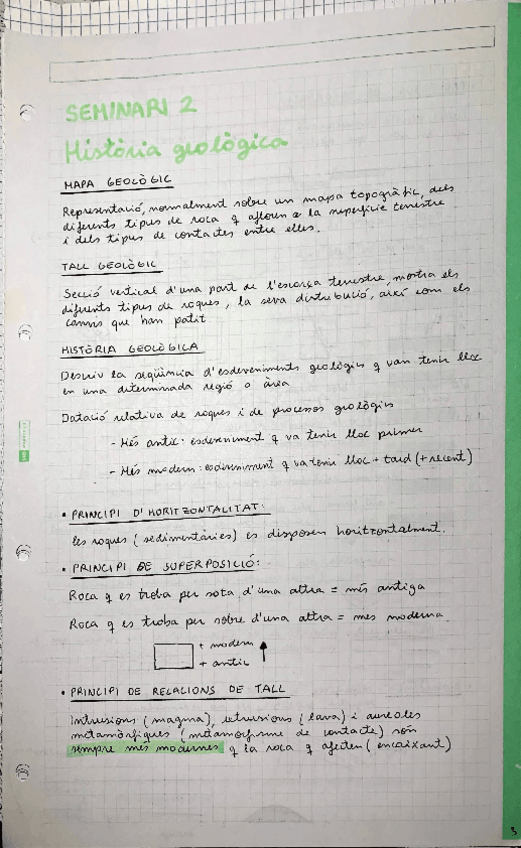 SEMINARI 2
Història geològica
MAPA GEOLÒGIC
Representació, normalment sobre un mapa topogràfic, dels
diferents tipus de roca q afloren a la superfície terrestre
i dels tipus de contactes entre elles.
TALL GEOLÒGIC
Secció vertical d'una part de l'escorça terrestre, mostra els
diferents tipus de roques, la seva distribució, així com els
canvis que han patit
HISTÒRIA GEOLÒGICA
Descriu la seqüència d'esdeveniments geològics q van tenir lloc
en una determinada regió o àrea
Datació relativa de roques i de processos geològics
- Més antic: esdeveniment q va tenir lloc primer
- Més modern: esdeveniment q va tenir lloc + tard (+ recent)
• PRINCIPI D'HORITZONTALITAT:
les roques (sedimentàries) es disposen horitzontalment.
• PRINCIPI DE SUPERPOSICIÓ:
Roca q es troba per sota d'una altra = més antiga
Roca q es troba per sobre d'una altra = mes moderna
+ modern
+ antic
• PRINCIPI DE RELACIONS DE TALL
Intrusions (magma), extrusions (lava) i aureoles
metamòrfiques (metamorfisme de contacte) són
sempre més modernes q la roca q afecten (encaixant)
3